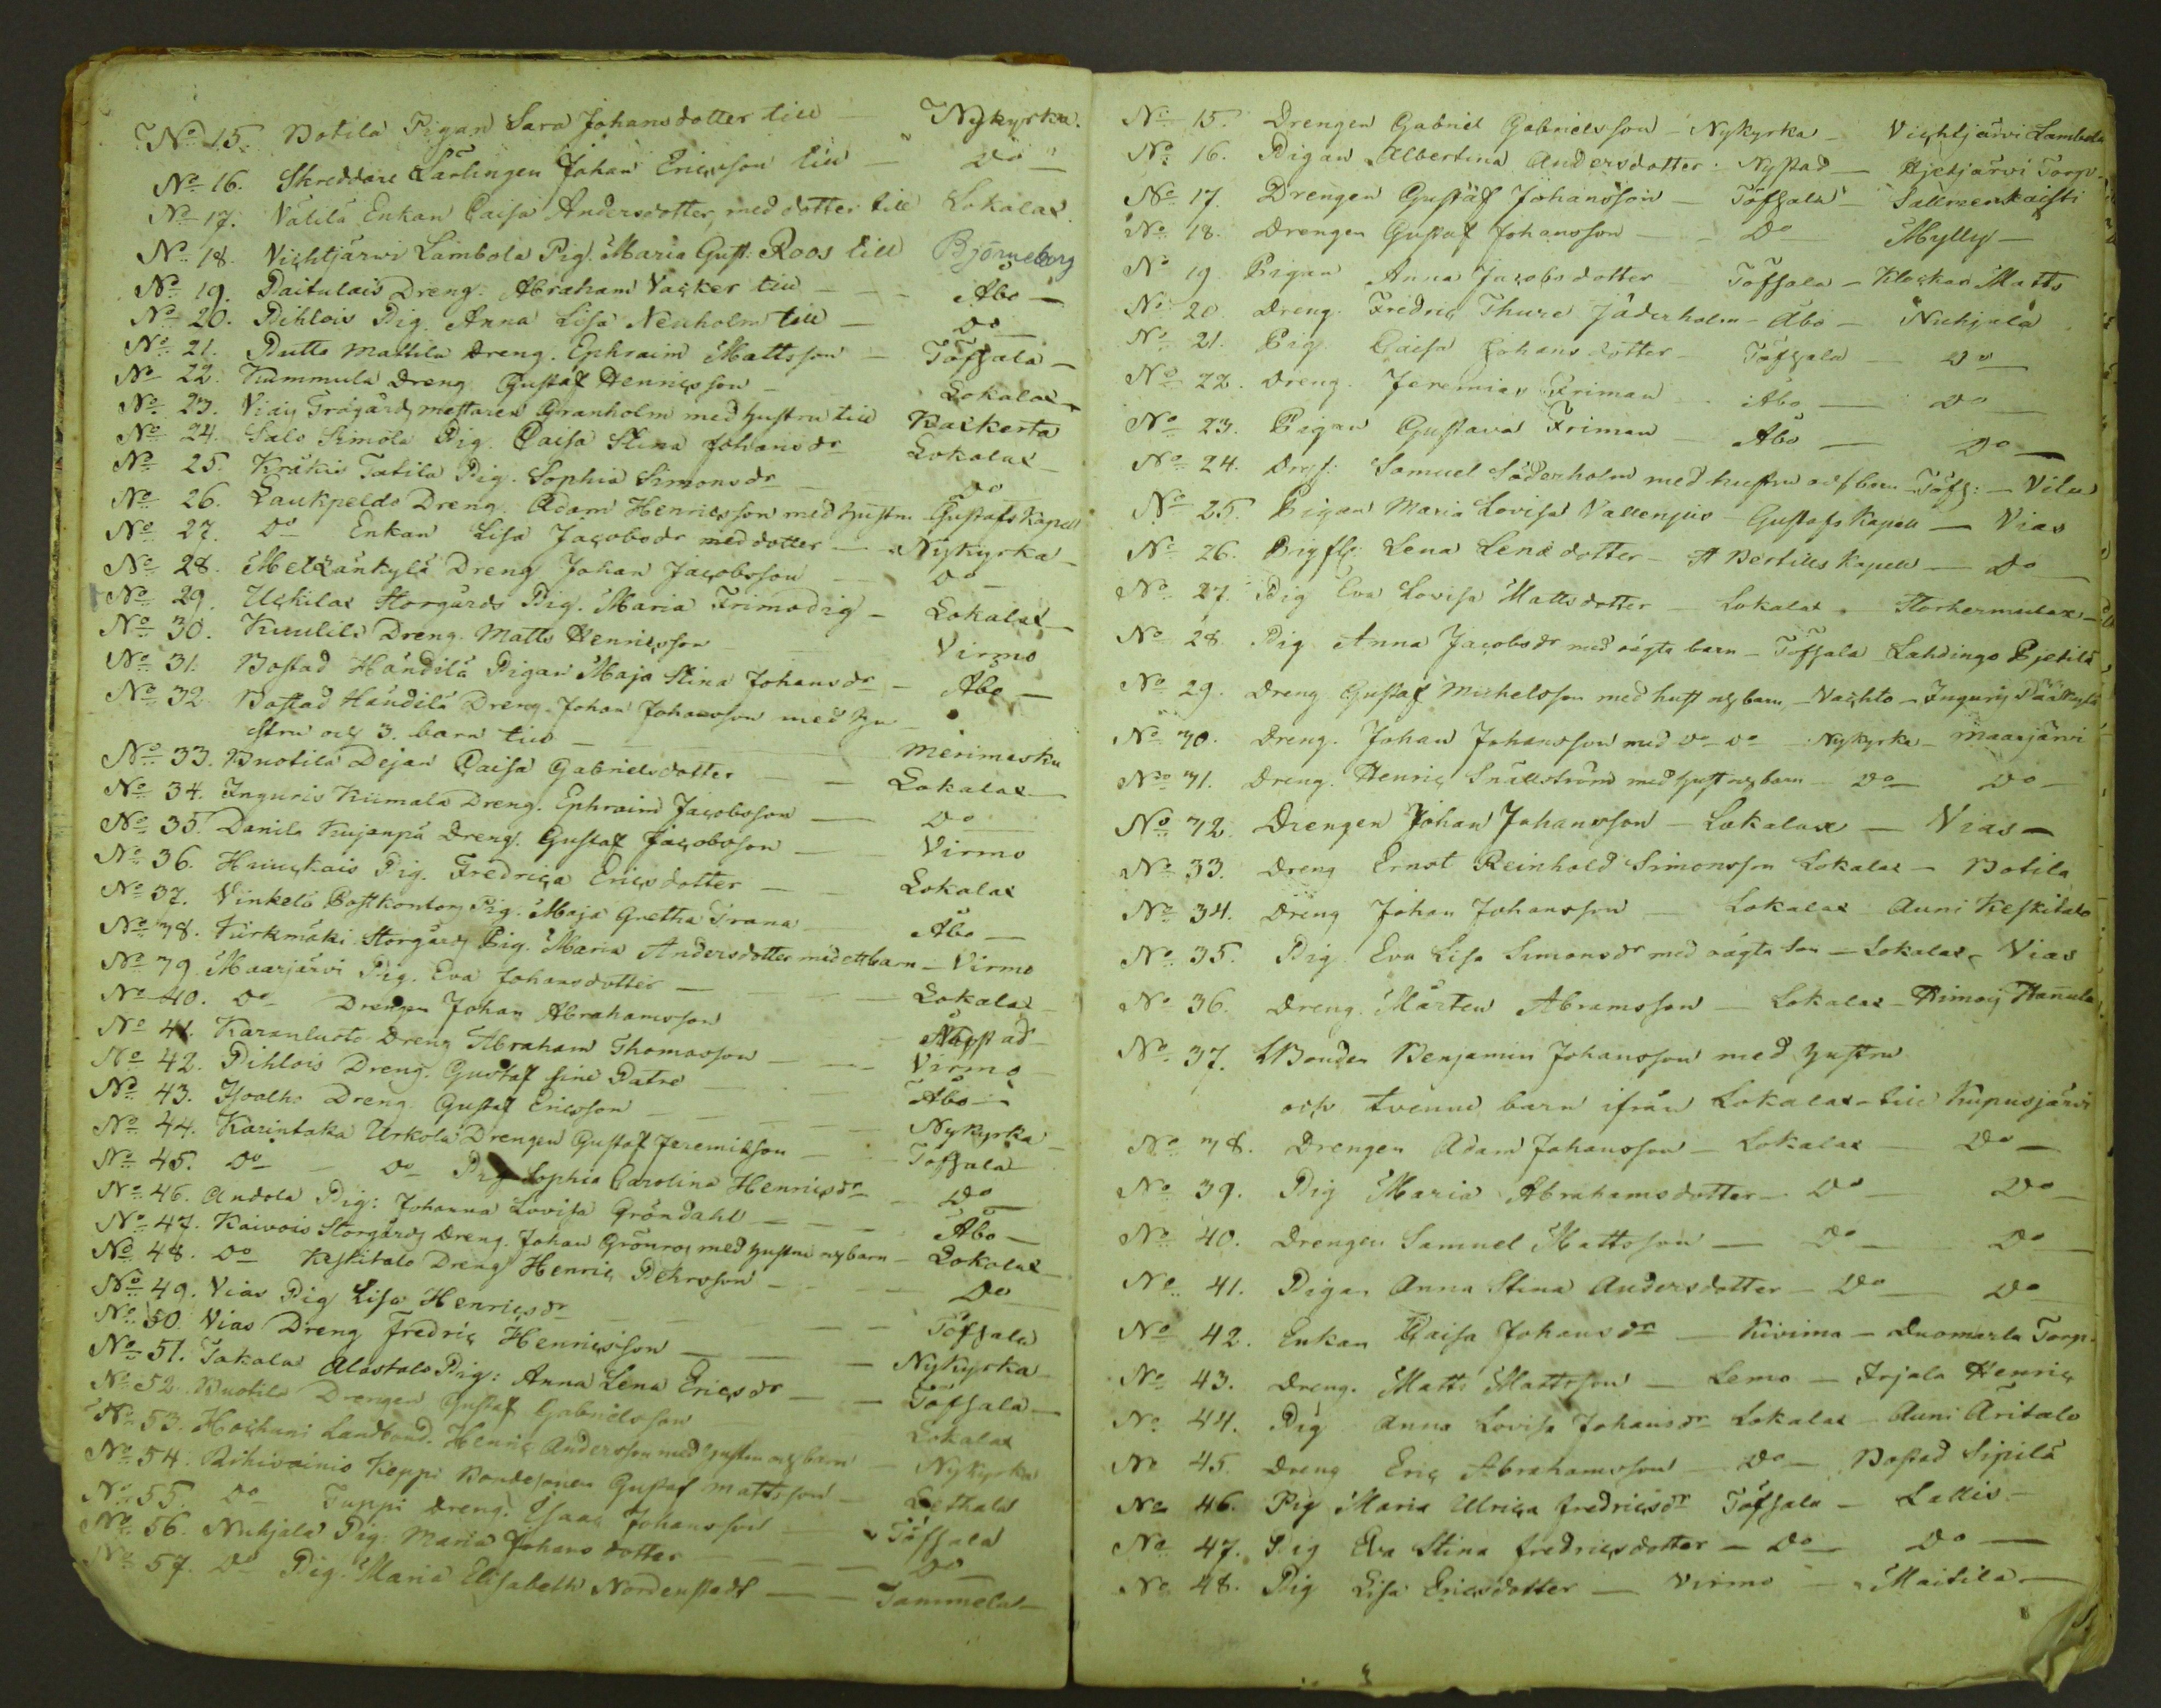 No 15. Botila Pigan Sara Johansdotter till — Nykyrka.
No 16. Skreddare Lärlingen Johan Ericsson till — Do —
No 17. Välilä Enkan Caisa Andersdotter, med dotter till Lokalax.
No 18. Vichtjärwi Lambola Pig. Maria Gust. Roos till Björneborg
No 19. Paitulais Dreng. Abraham Vacker till — Åbo —
No 20. Pihlois Pig. Anna Lisa Neuholm till — Do —
No 21. Putto Mattila Dreng. Ephraim Mattsson — Töfsala —
No 22. Kummula Dreng Gustaf Henricsson — Lokalax —
No 23. Viais Trägårdsmästaren Granholm med hustru till Kackerta
No 24. Salo Simola Pig. Caisa Stina Johansdr Lokalax —
No 25. Kräkis Tatila Pig. Sophia Simonsdr — Do
No 26. Laukpeldo Dreng. Adam Henricsson med hustru Gustafs Kapell
No 27. Do Enkan Lisa Jacobsdr med dotter — Nykyrka —
No 28. Metzänkylä Dreng Johan Jacobsson — Do —
No 29. Uckilax Storgårds Pig. Maria Frimodig — Lokalax —
No 30. Kuulila Dreng. Matts Henricsson Virmo
No 31. Bostad Händilä Pigan Maja Stina Johansdr — Åbo —
No 32. Bostad Händilä Dreng. Johan Johansson med hu-
stru och 3. barn till — Merimasku
No 33. Buotila Dejan Caisa Gabrielsdotter — Lokalax —
No 34. Inguris Kiimala Dreng. Ephraim Jacobsson — Do
No 35. Danila Kujanpä Dreng. Gustaf Jacobsson — Virmo
No 36. Hunckais Pig. Fredrica Ericsdotter — Lokalax
No 37. Vinkelä Postkontor Pig. Maja Gretha Trana Åbo —
No 38. Kirkmäki Storgårds Pig. Maria Andersdotter med ett barn — Virmo
No 39. Maarjärvi Pig. Eva Johansdotter — Lokalax
No 40. Do Drengen Johan Abrahamsson — Nystad
No 41. Karanluoto Dreng Abraham Thomasson — Virmo
No 42. Pihlois Dreng. Gustaf sine Patre — Åbo —
No 43. Isoalho Dreng Gustaf Ericsson — Nykyrka
No 44. Karintaka Urkola Drengen Gustaf Jeremiasson — Töfsala
No 45. Do — Do Pig Sophia Carolina Henricsdr — Do
No 46. Andola Pig: Johanna Lovisa Gröndahl — Åbo —
No 47. Kaivois Storgårds Dreng. Johan Grönroos med hustru och barn — Lokalax
No 48. Do Keskitalo Dreng Henric Pehrsson — Do
No 49. Vias Pig Lisa Henricsdr — Töfsala
No 50. Vias Dreng Fredric Henricsson — Nykyrka
No 51. Takala Alastalo Pig: Anna Lena Ericsdr — Töfsala —
No 52. Buotila Drengen Gustaf Gabrielsson Lokalax
No 53. Landbond. Henric Andersson med hustru och barn — Nykyrka
No 54. Rihivainio Keppi Bondesonen Gustaf Mattsson — Lethala
No 55. Do Tuppi Dreng. Isaac Johansson — Töfsala
No 56. Nuhjala Pig. Maria Johansdotter — Do
No 57. Do Pig. Maria Elisabeth Nordenstadt — Tammela —
No 15. Drengen Gabriel Gabrielsson — Nykyrka — Vichtjärvi Lambola
No 16. Pigan Albertina Andersdotter. Nystad — Hjetjärvi Torp
No 17. Drengen Gustaf Johansson — Töfsala — Sallmenkaisti
No 18. Drengen Gustaf Johansson — Do — Mylly —
No 19. Pigan Anna Jacobsdotter Töfsala — Klockar Matts
No 20. Dreng. Fredric Thure Jäderholm — Åbo — Nuhjala
No 21. Pig. Caisa Johansdotter — Töfsala — Do
No 22. Dreng. Jeremias Friman — Åbo — Do —
No 23. Pigan Gustava Friman — Åbo — Do —
No 24. Samuel Söderholm med hustru och barn — Töfs: — Vilu
No 25. Pigan Maria Lovisa Vallenjus — Gustafs Kapell — Vias
No 26. Lena Lenædotter — St Bertills Kapell — Do —
No 27. Pig Eva Lovisa Mattsdotter — Lokalax — Storhermulax —
No 28. Pig. Anna Jacobsdr med oägta barn — Töfsala Lahdingo Pjetilä
No 29. Dreng. Gustaf Michelsson med hust och barn, — Vachto — Inguris Päälkylä
No 30. Dreng. Johan Johansson med Do Do — Nykyrka — Maarjärvi
No 31. Dreng. Henric Snällström med hust och barn — Do Do —
No 32. Drengen Johan Johansson — Lokalax — Vias —
No 33. Dreng Ernst Reinhold Simonsson Lokalax — Botila
No 34. Dreng Johan Johansson — Lokalax Auni Keskitalo
No 35. Pig Eva Lisa Simonsdr med oägta Son — Lokalax — Vias
No 36. Dreng. Mårten Abramsson — Lokalax — Himois Hannula
No 37. Bonden Benjamin Johansson med hustru
och tvenne barn ifrån Lokalax till Kupusjärvi
No 38. Drengen Adam Johansson — Lokalax — Do —
No 39. Pig Maria Abrahamsdotter — Do — Do —
No 40. Drengen Samuel Mattsson — Do — Do —
No 41. Pigan Anna Stina Andersdotter — Do — Do —
No 42. Enkan Caisa Johansdr — Kivimo — Duomarla Torp.
No 43. Dreng. Matts Mattsson — Lemo — Irjala Henric
No 44. Pig Anna Lovisa Johansdr Lokalax — Auni Aritalo
No 45. Dreng Eric Abrahamsson — Do — Bostad Sipilä
No 46. Pig Maria Ulrica Fredricsdr Töfsala — Lallis —
No 47. Pig Eva Stina Fredricsdotter — Do — Do —
No 48. Pig Lisa Ericsdotter — Virmo — Maitila —